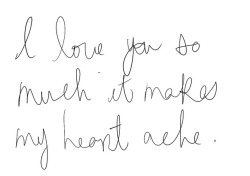 I love you so
much it makes
my heart ache.